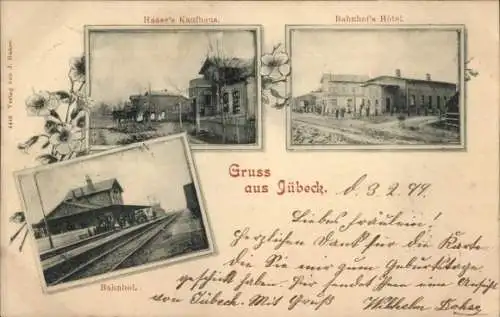 Haase's Kaufhaus.
Bahnhof's Hôtel.
Verlag von J. Haase.
Gruss
aus Jübeck.
Bahnhof.
d. 3. 2. 99.
Liebes Fräulein!
Herzlichen Dank für die Karte
die Sie mir zum Geburtstage
geschickt haben. Hier sendet Ihnen eine Ansicht
von Jübeck. Mit Gruß
Wilhelm